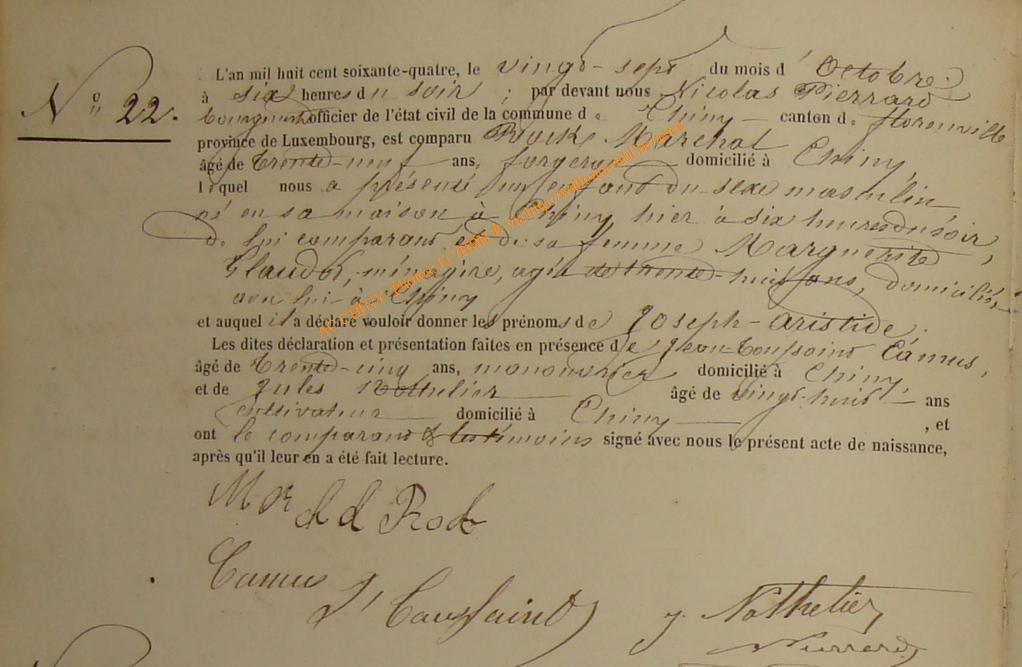 L'an mil huit cent soixante-quatre, le vingt-sept du mois d'Octobre
N° 22.
à six heures du soir ; par devant nous Nicolas Pierrard
bourgmestre officier de l'état civil de la commune de Chiny canton de florenville
province de Luxembourg, est comparu Maréchal
âgé de trente-neuf ans, forgeron domicilié à Chiny,
lequel nous a présenté un enfant du sexe masculin
né en sa maison à Chiny hier à six heures du soir,
de lui comparant et de sa femme Marguerite,
ménagère, agée de trente-huit ans, domiciliée
avec lui à Chiny
et auquel il a déclaré vouloir donner les prénoms de Joseph-Aristide.
Les dites déclaration et présentation faites en présence de Jean-Toussaint Camus,
âgé de trente-cinq ans, manouvrier domicilié à Chiny
et de Jules âgé de vingt-huit ans
cultivateur domicilié à Chiny , et
ont le comparant & les témoins signé avec nous le présent acte de naissance,
après qu'il leur en a été fait lecture.
Camus
Toussaint J. Nothelier
Pierrard